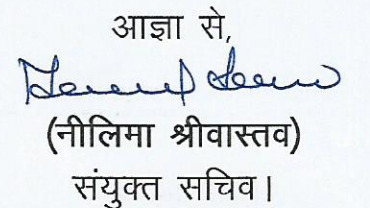 आज्ञा से,
(नीलिमा श्रीवास्तव)
संयुक्त सचिव।